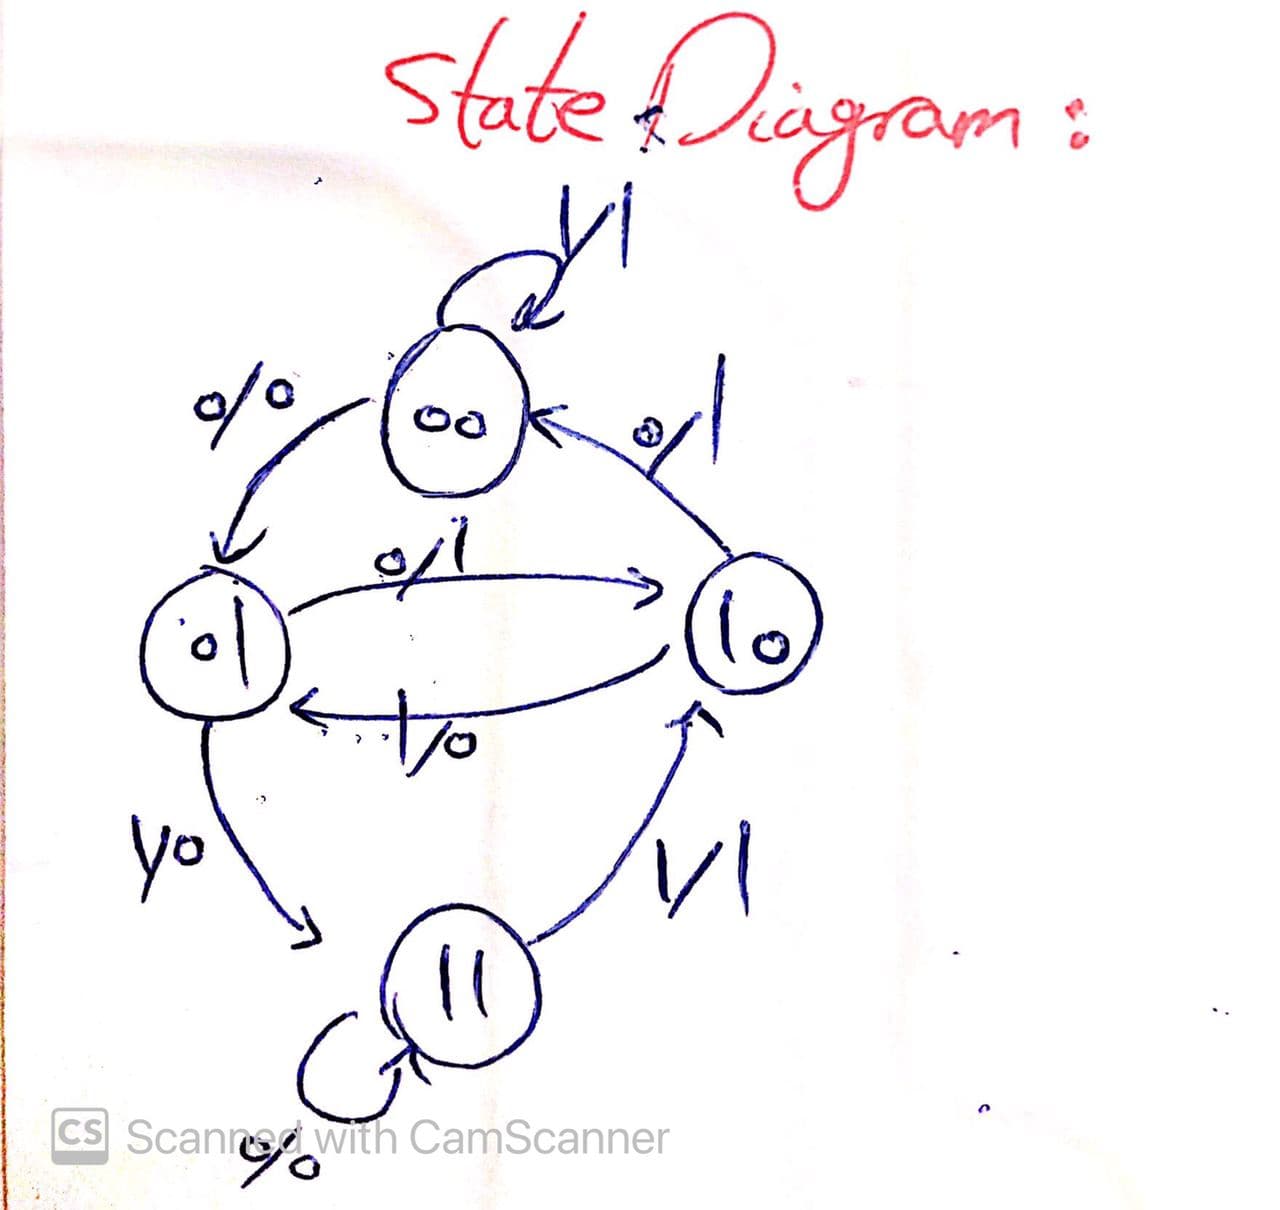 State Diagram :
1/1
0/0
00
0/1
0/1
01
10
1/0
1/0
1/1
11
CS Scanned with CamScanner
0/0